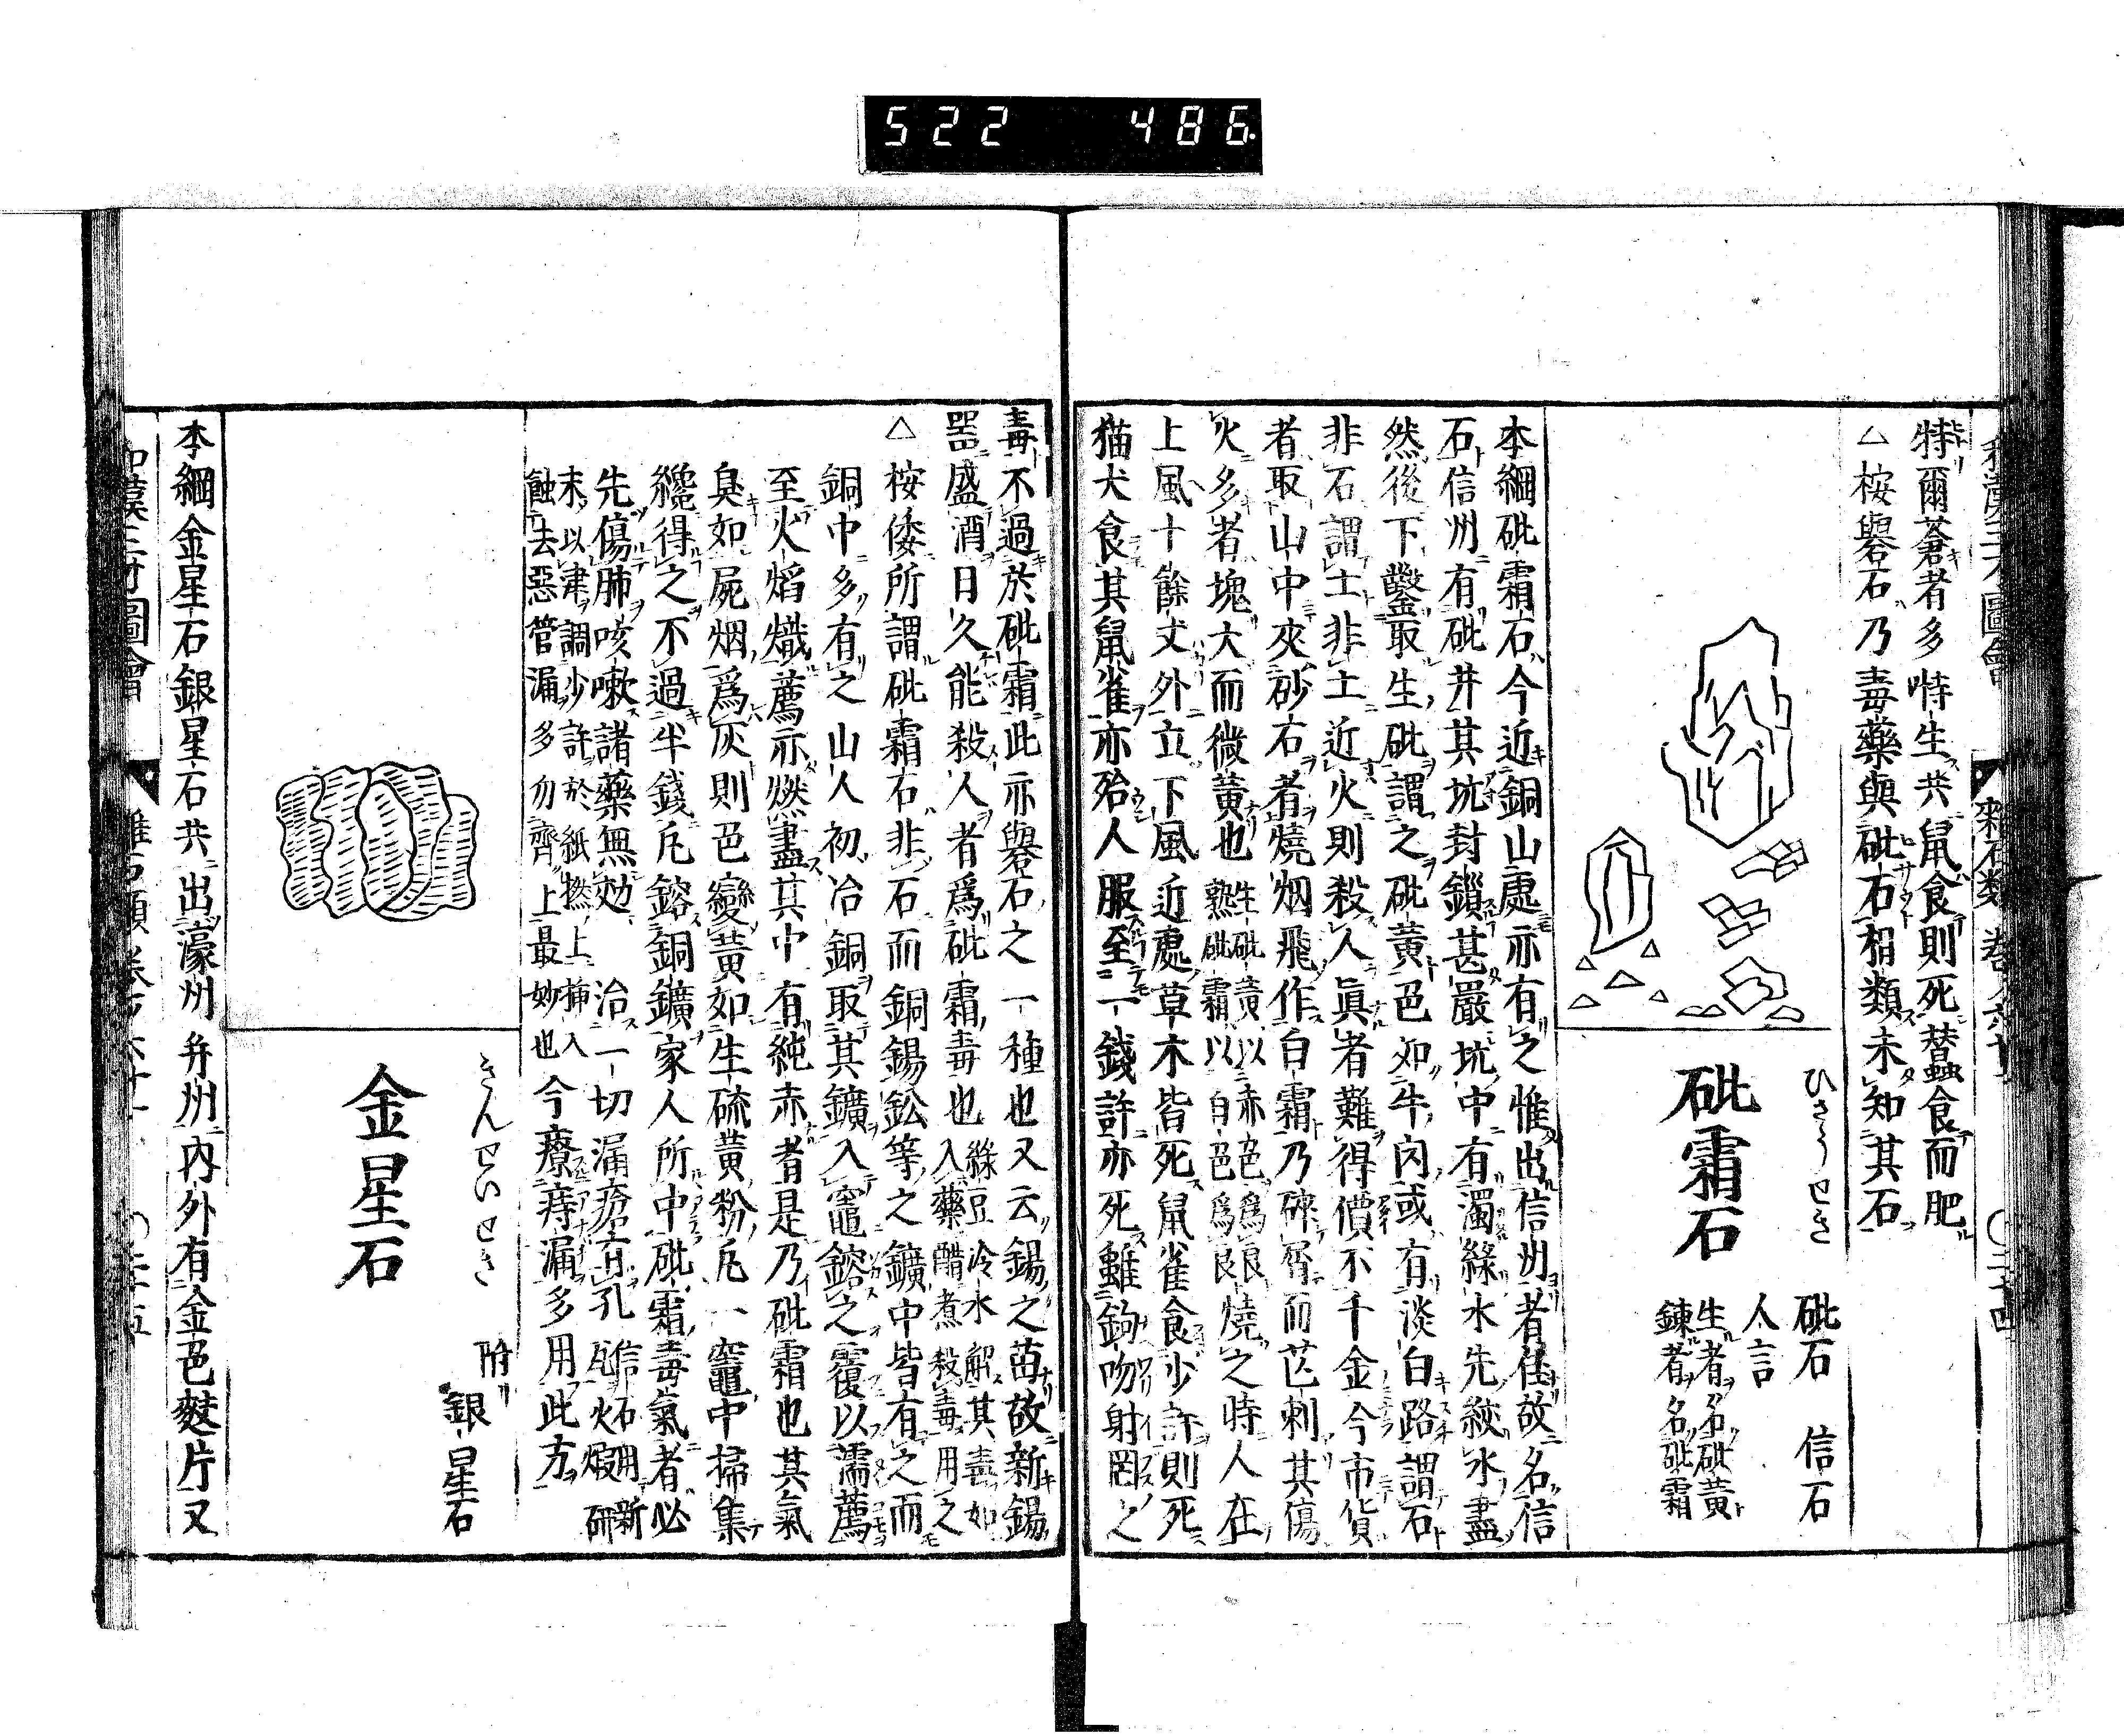 522 486
特爾蒼者多特生共鼠食則死蠶食而肥
△桉礜石乃毒藥與砒石相類未知其石
ひさうせき
砒霜石
砒石 信石
人言
生者名砒黃
鍊者名砒霜
本綱砒霜石今近銅山處亦有之惟出信州者佳故名信
石信州有砒井其坑封鎖甚嚴坑中有濁綠水先絞水盡
然後下鑿取生砒謂之砒黃色如牛肉或有淡白路謂石
非石謂土非土近火則殺人眞者難得價不千金今市貨
者取山中夾砂石者燒烟飛作白霜乃碎屑而芒刺其傷
火多者塊大而微黃也生砒黃以赤色爲良
熟砒霜以白色爲良燒之時人在
上風十餘丈外立下風近處草木皆死鼠雀食少許則死
猫犬食其鼠雀亦殆人服至一錢許亦死雖鉤吻射罔之
毒不過於砒霜此亦礜石之一種也又云錫之苗故新錫
器盛酒日久能殺人者爲砒霜毒也綠豆冷水解其毒如
入藥醋煮殺毒用之
△桉倭所謂砒霜石非石而銅錫鈆等之鑛中皆有之而
銅中多有之山人初冶銅取其鑛入竈鎔之覆以濡薦
至火焰熾薦亦燃盡其中有純赤者是乃砒霜也其氣
臭如屍烟爲灰則色變黃如生硫黃粉凢一竈中掃集
纔得之不過半錢凢鎔銅鑛家人所中砒霜毒氣者必
先傷肺咳嗽諸藥無効 治一切漏瘡有孔信石用新
瓦火煆研
末以津調少許於紙撚上揷入
蝕去惡管漏多勿齊上最妙也今療痔漏多用此方
きんせいせき
金星石
附
銀星石
本綱金星石銀星石共出濠州并州內外有金色麩片又